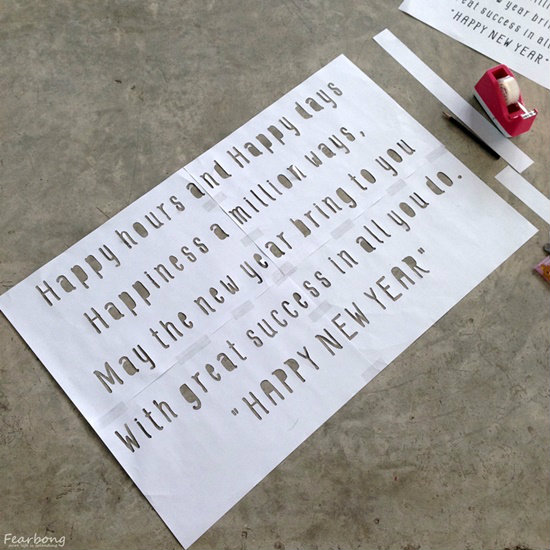 Happy hours and Happy days
Happiness a million ways,
May the new year bring to you
With great success in all you do.
"HAPPY NEW YEAR"
year brin
success in al
"HAPPY NEW YEAR"
Fearbong